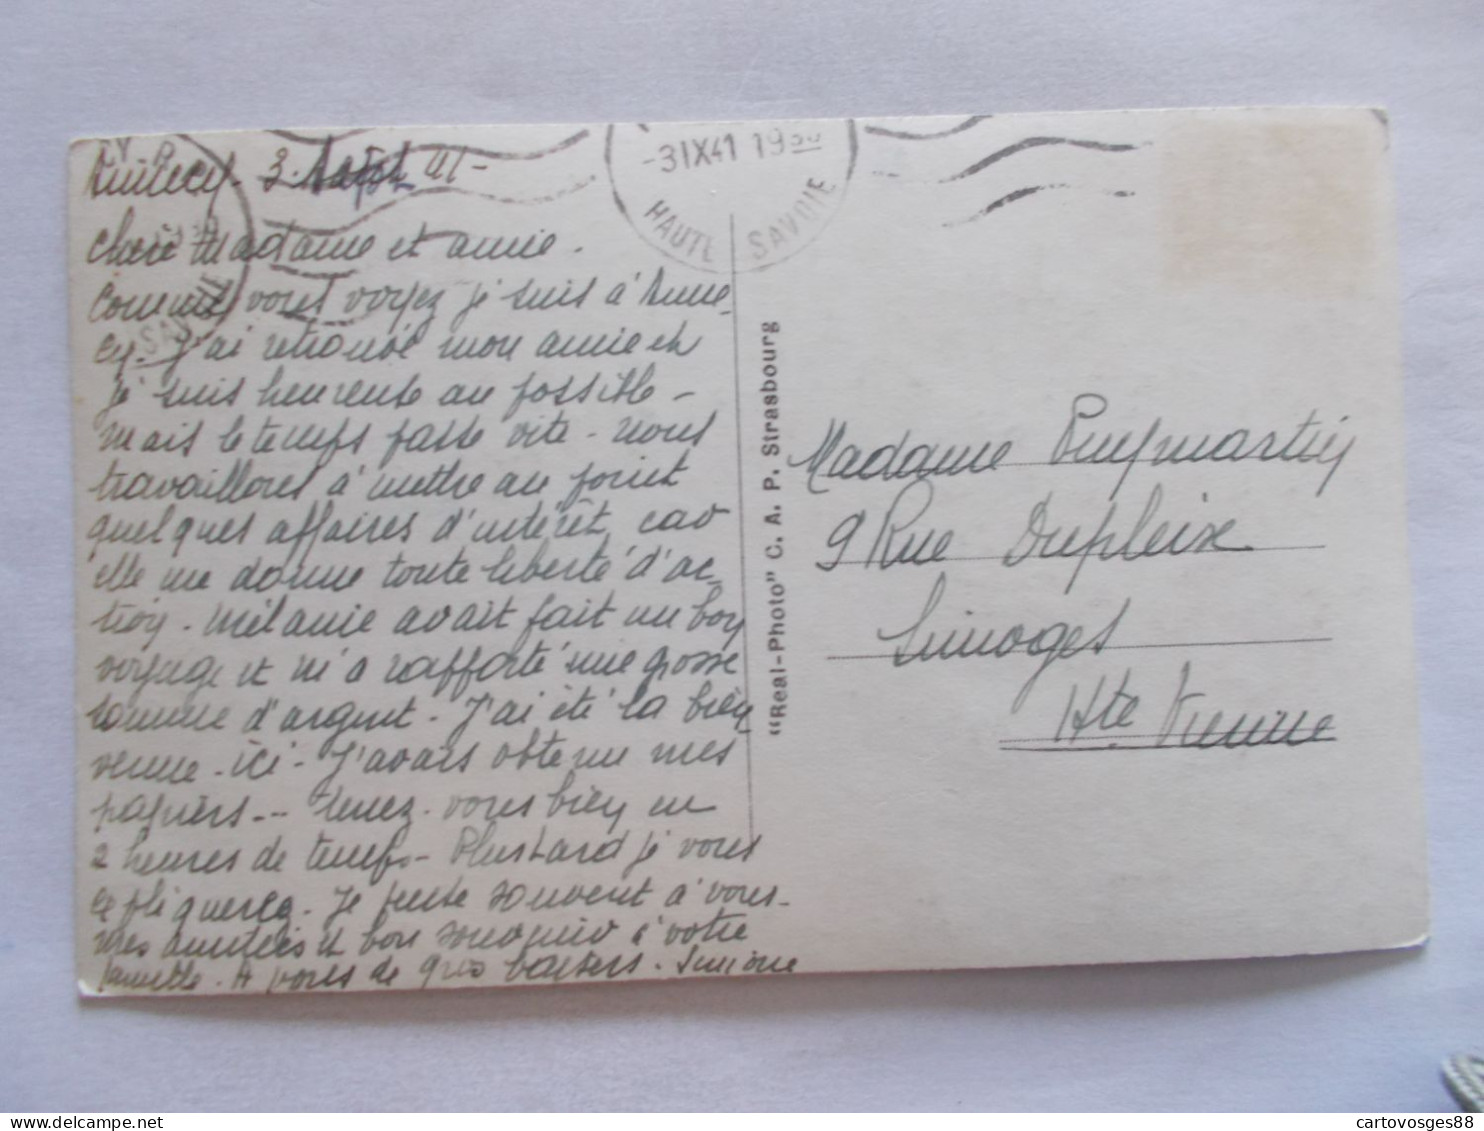 Annecy - 3 41 -
Chère Madame et amie -
Comme vous voyez je suis à Anne-
cy. J'ai retrouvé mon amie et
je suis heureuse au possible -
mais le temps passe vite - nous
travaillons à mettre au point
quelques affaires d'intérêt car
elle me donne toute liberté d'ac-
tion - Mélanie avait fait un bon
voyage et m'a rapporté une grosse
somme d'argent. J'ai été la bien
venue - ici - J'avais obtenu mes
papiers -- tenez-vous bien en
2 heures de temps - Plus tard je vous
expliquerez. Je pense souvent à vous -
mes amitiés et bon souvenir à votre
famille. A vous de gros baisers. Simone
-3 IX 41 19 30
HAUTE SAVOIE
SAVOIE
"Real-Photo" C. A. P. Strasbourg
Madame Puymartin
9 Rue Dupleix
Limoges
Hte Vienne
cartovosges88